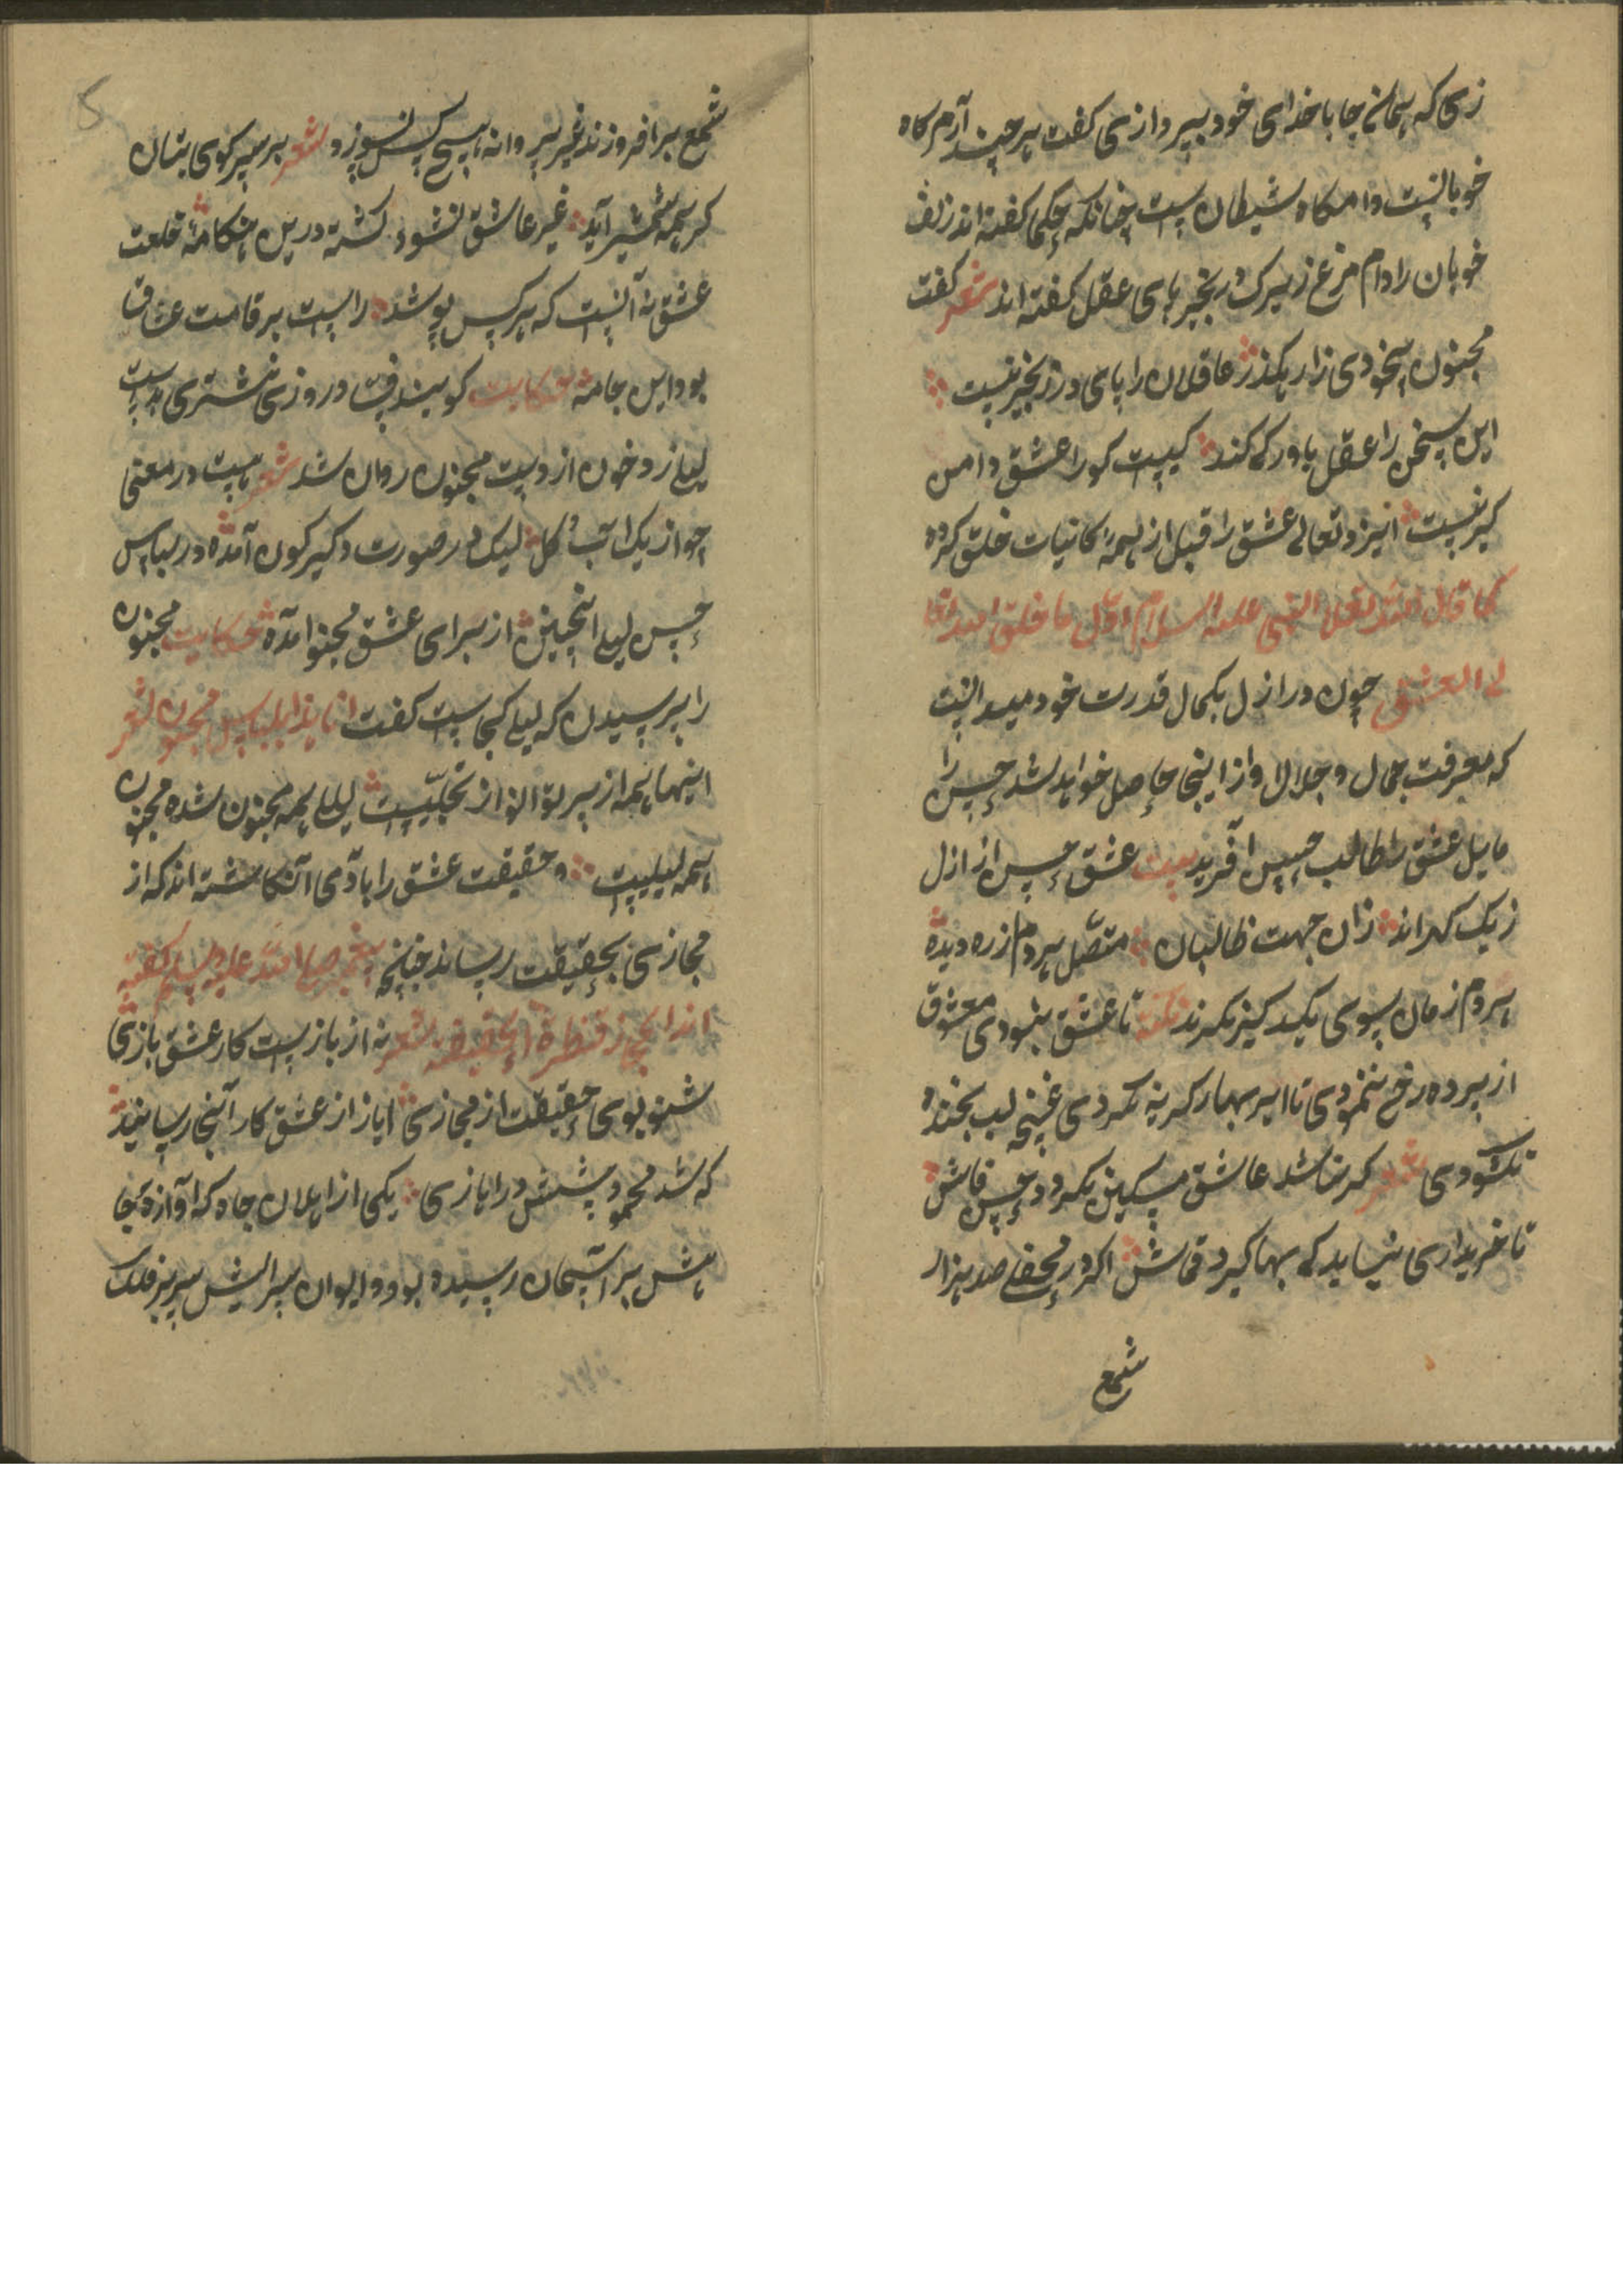 زی که همانجا با خدای خود بپردازی گفت هر چند آرام گاه
خوبانست دامگاه شیطان است چنانکه حکما گفته اند زلف
خوبان را دام مرغ زیرک و زنجیر پای عقل گفته اند شعر گفت
مجنون بیخودی زار بگذر عاقلان را پای در زنجیر نیست
این سخن را عقل باور کی کند کیست کورا عشق دامن
گیر نیست ایزد تعالی عشق را قبل از همه کاینات خلق کرده
کما قال النبی علیه السلام اول ما خلق الله تعا
لی العشق چون در ازل بکمال قدرت خود میدانست
که معرفت جمال و جلال او از اینجا حاصل خواهد شد حسن را
مایل عشق طالب حسن آفرید بیت عشق حسن از ازل
ز یک گهراند زان جهت طالبان متصل هر دم از ره دیده
هر دم زمان بسوی یکدیگر نگرند نکته تا عشق نبودی معشوق
از پرده رخ ننمودی تا ابر بهار گریه نکردی غنچه لب بخنده
نکشودی شعر گر نباشد عاشق مسکین نگردد حسن فاش
تا خریداری نیاید کی بها گیرد قماش اگر در محفلی صد هزار
شمع
شمع برافروزند غیر پروانه هیچ کس نسوزد شعر بر سر کوی بتان
گر همه شمشیر آید غیر عاشق نشود کشته درین هنگامه خلعت
عشق نه آنست که هر کس پوشد راست بر قامت عشاق
بود این جامه حکایت گویند وقت در روزی نشتری بدست
لیلی زد خون از دست مجنون روان شد شعر هست در معنی
چو از یک آب و گل لیک در صورت دگرگون آمده در لباس
حسن لیلی اینچنین از برای عشق مجنون آمده حکایت مجنون
را پرسیدن که لیلی کجاست گفت انا لیلی شعر
اینها همه از پرتو انوار تجلیست لیلی همه مجنون شده مجنون
همه لیلیست و حقیقت عشق را با آدمی انگاشته اند که از
مجازی بحقیقت رساند چنانچه پیغمبر صلی الله علیه وسلم گفته
اند المجاز قنطرة الحقیقة شعر نه از بازیست کار عشق بازی
شنو بوی حقیقت از مجازی ایاز از عشق کار آنجا رسانید
که شد محمود پیشش در ایازی یکی از اهلان جاه که آوازه
هش بر آسمان رسیده بود و ایوان سرایش سر بر فلک